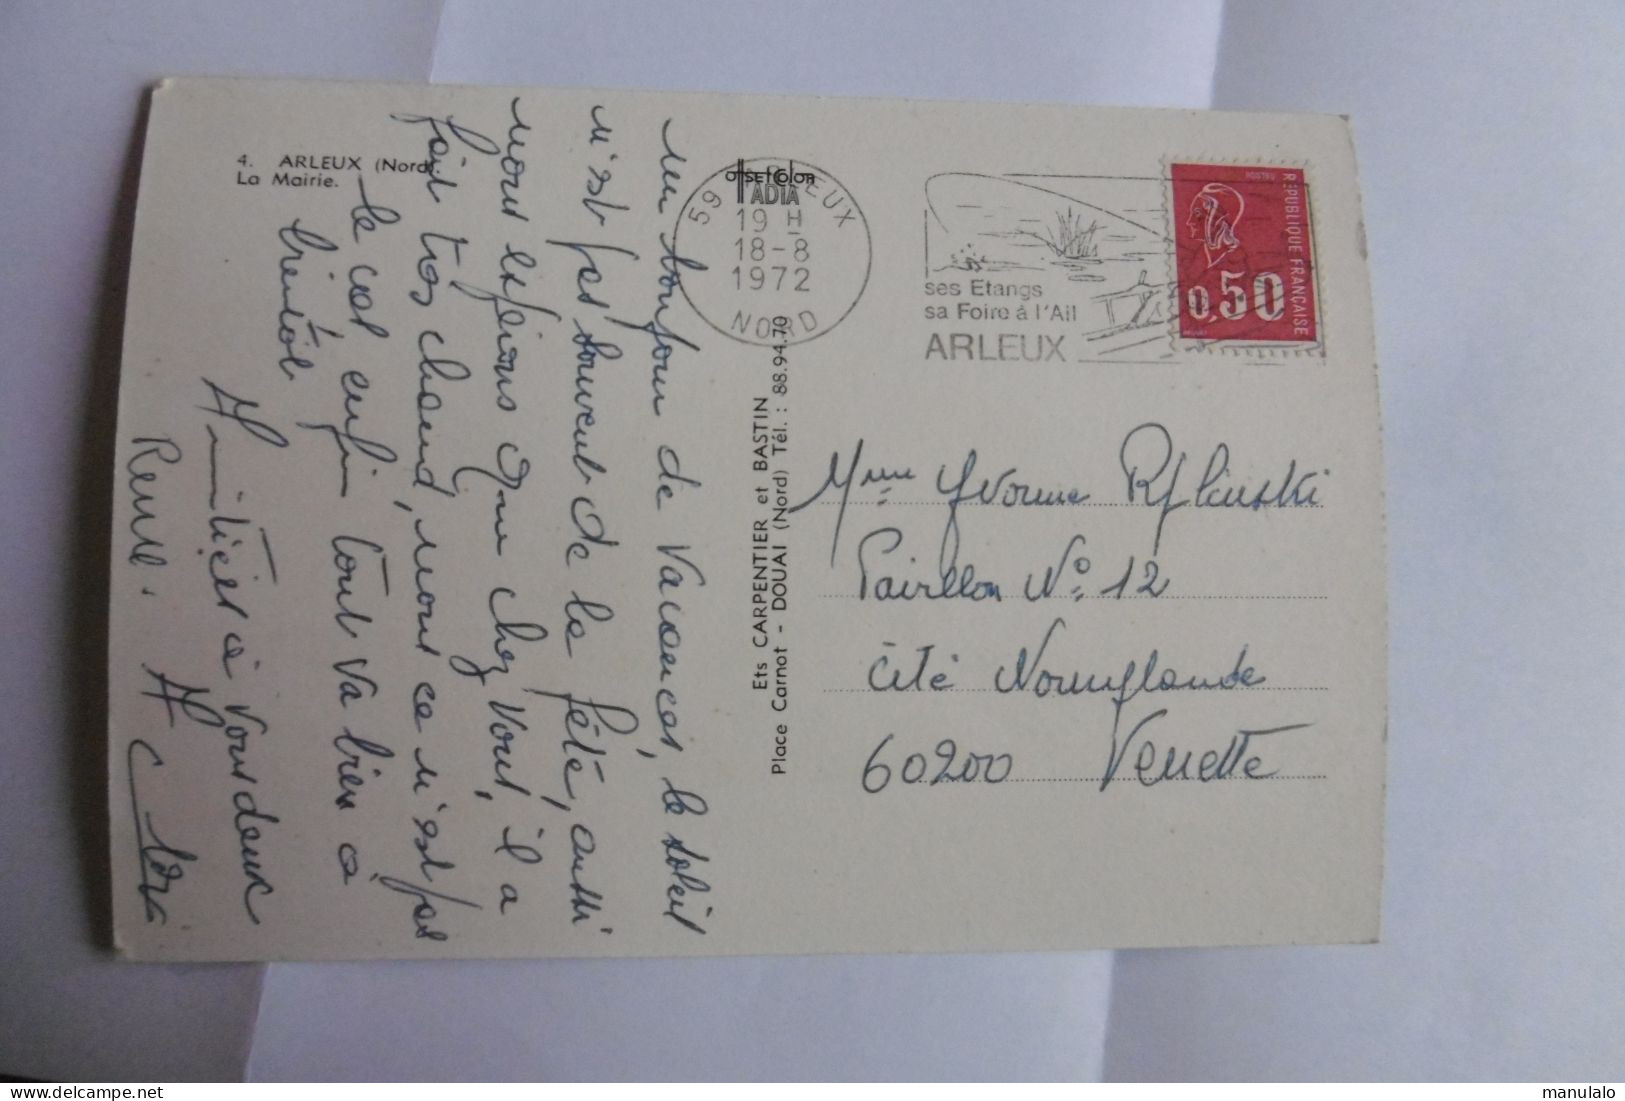 4. ARLEUX (Nord).
La Mairie.
un bonjour de Vacances, le soleil
n'est pas souvent de la fête, aussi
nous espérons que chez vous, il a
fait très chaud, nous ce n'est pas
le cas, enfin tout va bien à
bientôt
Amitiés à vous deux
René.
OFFSET COLOR
ADIA
Ets CARPENTIER et BASTIN
Place Carnot - DOUAI (Nord) Tél. : 88.94.70
59 ARLEUX
19 H
18-8
1972
NORD
ses Etangs
sa Foire à l'Ail
ARLEUX
POSTES
REPUBLIQUE FRANÇAISE
0,50
Mme Yvonne
Pavillon N° 12
Cité
60200 Venette
manulalo